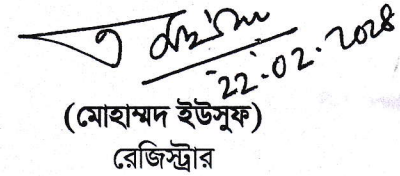 22.02.2024
(মোহাম্মদ ইউসুফ)
রেজিস্ট্রার